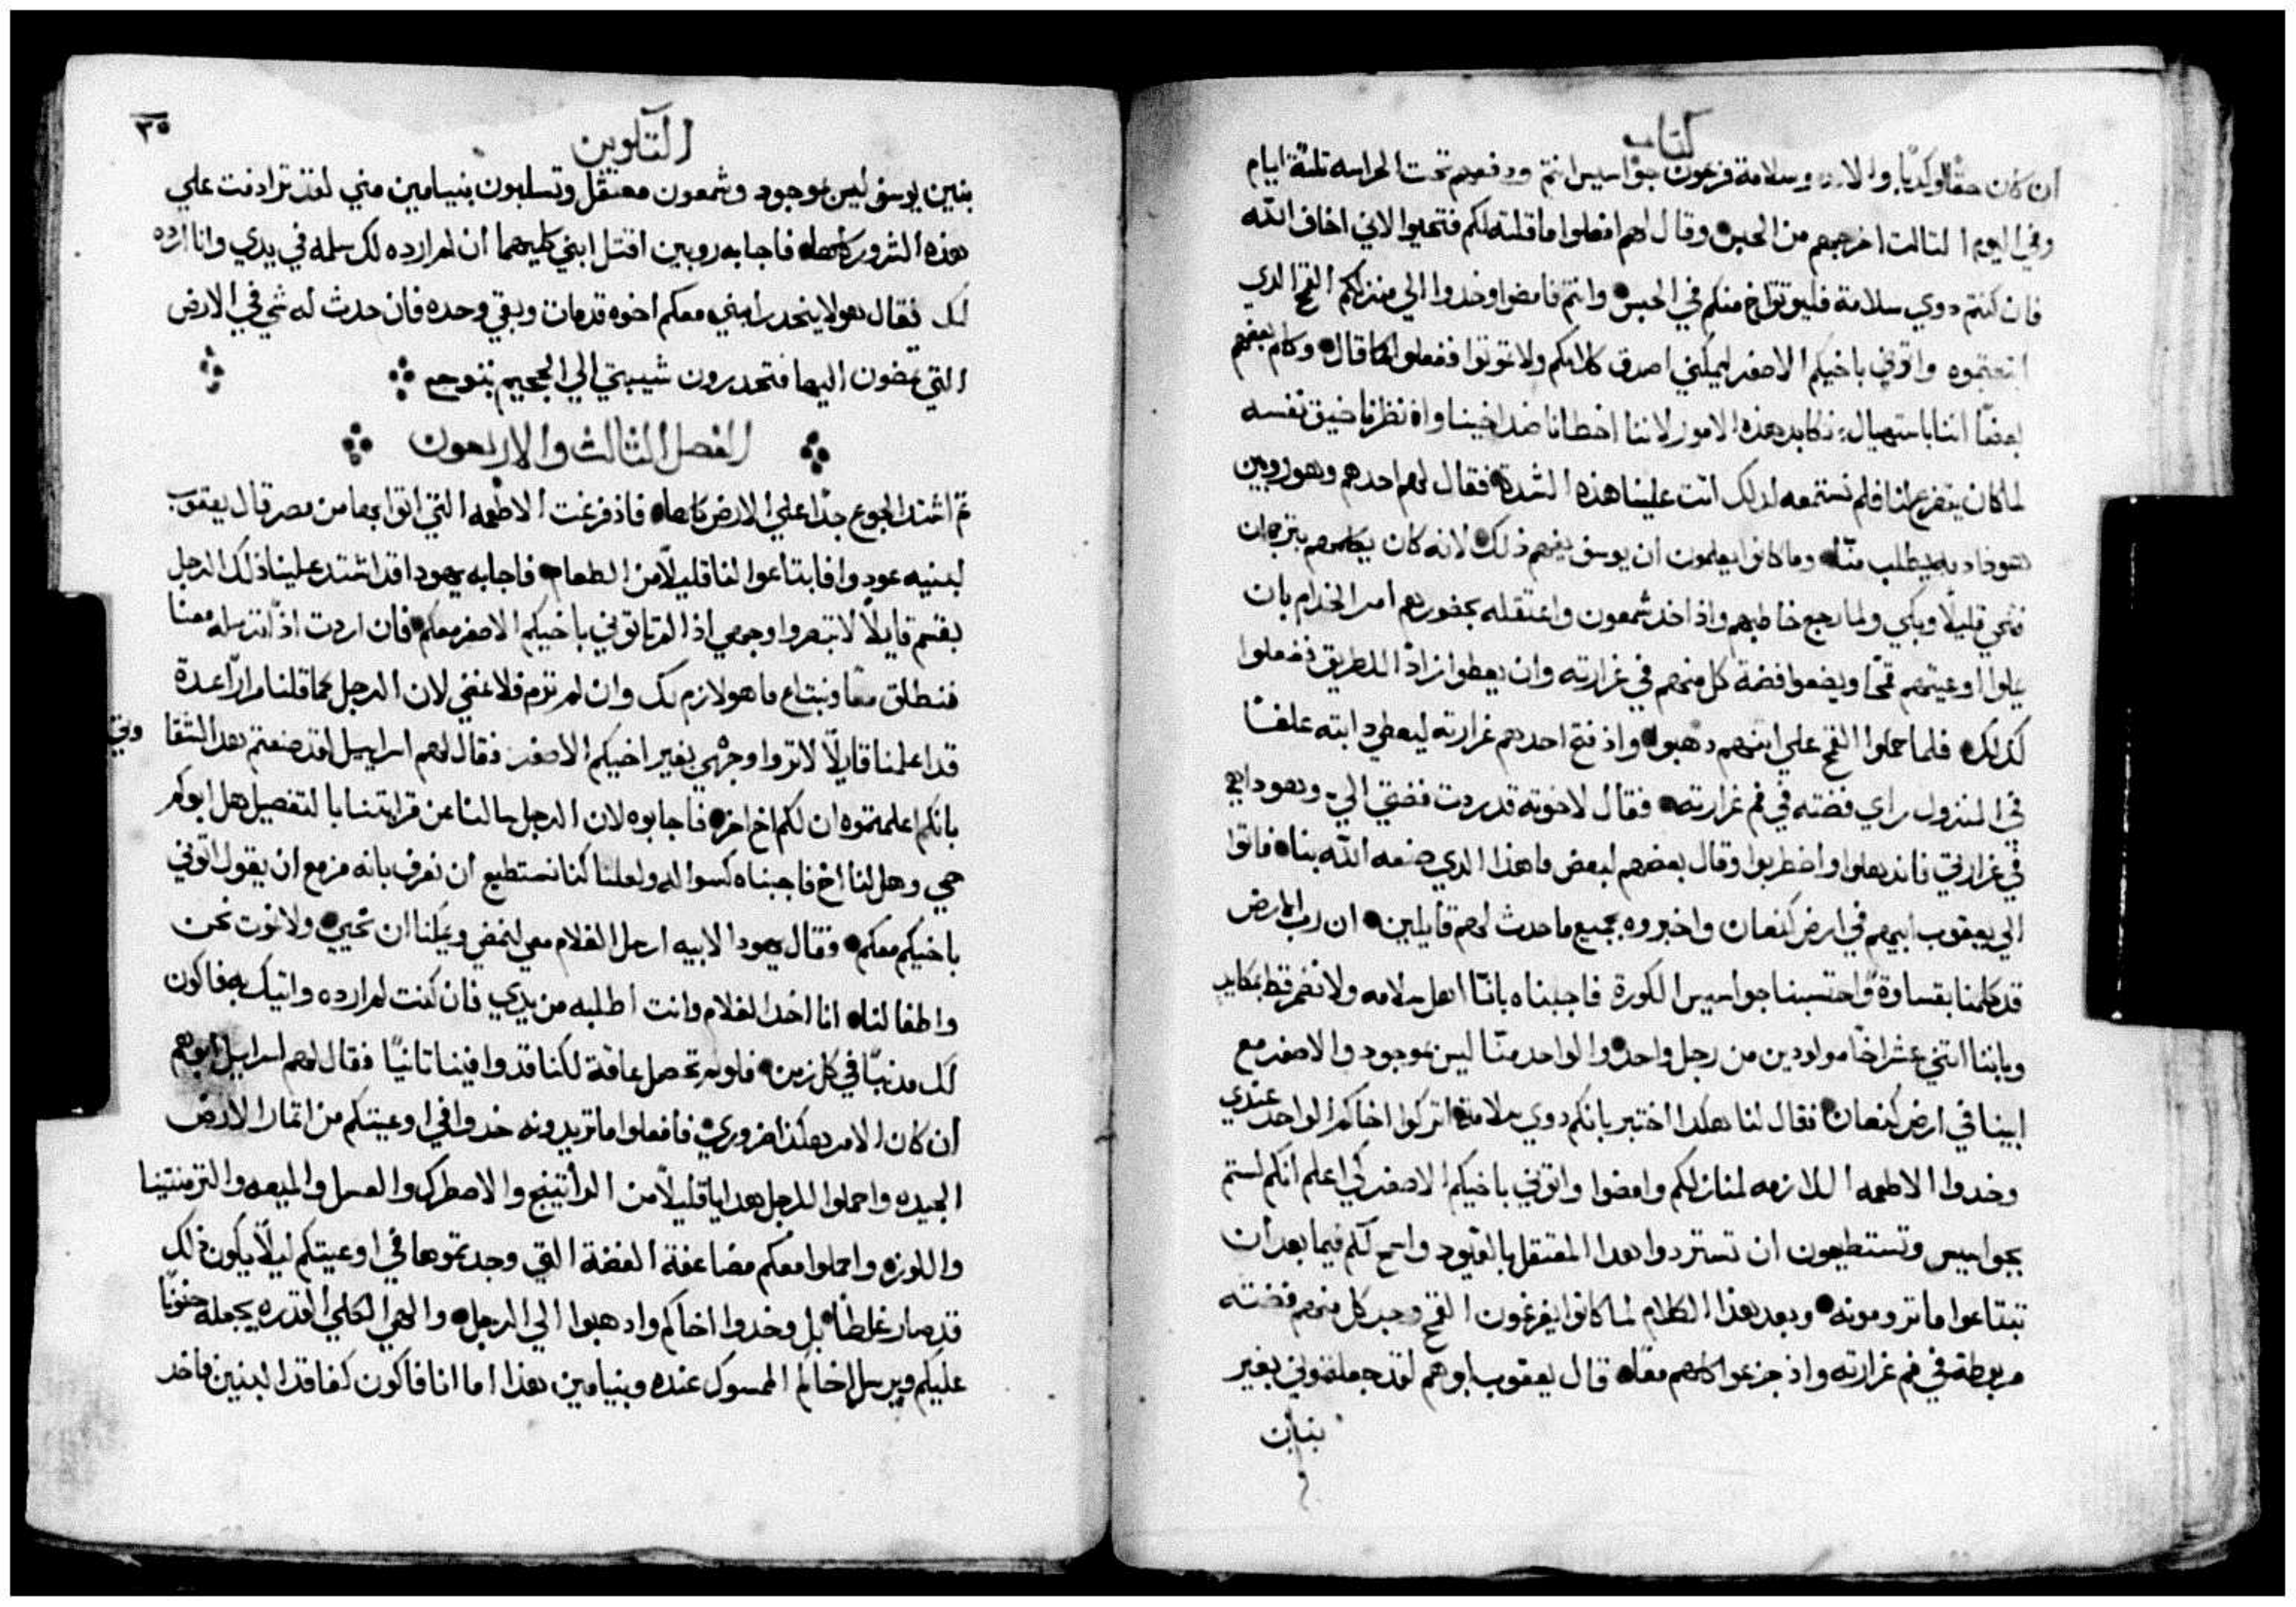 كتاب
ان كان حقًا او كدبًا والا وسلامة فرعون جواسيس انتم ودفعهم تحت الحراسه تلتة ايام
وفي اليوم التالت اخرجهم من الحبس وقال لهم افعلوا ما قلته لكم فتحيوا لاني اخاف الله
فان كنتم دوي سلامة فليوتق اخ منكم في الحبس وانتم فامضوا وخدوا الي منزلكم القمح الدي
ابتعتموه واتوني باخيكم الاصغر ليمكنني اصدق كلامكم ولا توتوا ففعلوا كما قال وكلم بعضهم
بعضًا اننا باستيهال نكابد هذه الامور لاننا اخطانا ضد اخينا واذ نظرنا ضيق نفسه
لما كان يتضرع لنا فلم نستمعه لدلك اتت علينا هذه الشدة فقال لهم احدهم وهو روبين
هودا دمه يطلب منا وما كانوا يعلمون ان يوسف يفهم ذلك لانه كان يكلمهم بترجمان
فتنحي قليلًا وبكي ولما رجع خاطبهم واذ اخد شمعون واعتقله بحضورهم امر الخدام بان
يملوا اوعيتهم قمحًا ويضعوا فضة كل منهم في غرارته وان يعطوا زادًا للطريق ففعلوا
كدلك فلما حملوا القمح علي اتنهم دهبوا واذ فتح احدهم غرارته ليعطي دابته علفًا
في المنزول راي فضته في فم غرارته فقال لاخوته قد ردت فضتي الي وهودا هي
في غرارتي فاندهلوا واضطربوا وقال بعضهم لبعض ما هذا الدي صنعه الله بنا فاتوا
الي يعقوب ابيهم في ارض كنعان واخبروه بجميع ما حدث لهم قايلين ان رب الارض
قد كلمنا بقساوة واحتسبنا جواسيس الكورة فاجبناه باننا اهل سلامه ولا نضمر قط بمكايد
وباننا اتني عشر اخًا مولودين من رجل واحد والواحد منا ليس بموجود والاصغر مع
ابينا في ارض كنعان فقال لنا هكدا اختبر بانكم دوي سلامة اتركوا اخاكم الواحد عندي
وخدوا الاطعمه اللازمه لمنازلكم وامضوا واتوني باخيكم الاصغر كي اعلم انكم لستم
بجواسيس وتستطيعون ان تستردوا هدا المعتقل بالقيود واسمح لكم فيما بعد ان
تبتاعوا ما ترومونه وبعد هذا الكلام لما كانوا يفرغون القمح وجد كل منهم فضته
مربوطة في فم غرارته واذ جزعوا كلهم معًا قال يعقوب ابوهم لقد جعلتموني بغير
بنين
التكوين
٣٥
بنين يوسف ليس بموجود وشمعون معتقل وتسلبون بنيامين مني لقد ترادفت علي
هذه الشرور كلها فاجابه روبين اقتل ابني كليهما ان لم ارده لك سلمه في يدي وانا ارده
لك فقال هو لا ينحدر ابني معكم اخوه قد مات وبقي وحده فان حدث له شي في الارض
التي تمضون اليها فتحدرون شيبتي الي الجحيم بنوح
الفصل الثالث والاربعون
ثم اشتد الجوع جدًا علي الارض كلها فاذ فرغت الاطعمه التي اتوا بها من مصر قال يعقوب
لبنيه عودوا فابتاعوا لنا قليلًا من الطعام فاجابه يهودا قد اشتد علينا ذلك الرجل
بقسم قايلًا لا تبصروا وجهي اذا لم تاتوني باخيكم الاصغر معكم فان اردت اذًا ترسله معنا
فننطلق معًا ونبتاع ما هو لازم لك وان لم ترم فلا نمضي لان الرجل كما قلنا مرارًا عدة
قد اعلمنا قايلًا لا تروا وجهي بغير اخيكم الاصغر فقال لهم اسراييل لقد صنعتم هدا لشقا وتي
بانكم اعلمتموه ان لكم اخ اخر فاجابوه لان الرجل سالنا عن قرابتنا بالتفصيل هل ابوكم
حي وهل لنا اخ فاجبناه كسواله ولعلنا كنا نستطيع ان نعرف بانه مزمع ان يقول اتوني
باخيكم معكم وقال يهودا لابيه ارسل الغلام معي لنمضي ويمكنا ان نحيي ولا نموت نحن
واطفالنا انا اخد الغلام وانت اطلبه من يدي فان كنت لم ارده واتيك به فاكون
لك مدنبًا في كل زمن فلو لم تحصل عاقة لكنا قد وافينا تانيًا فقال لهم اسراييل ابوهم
ان كان الامر هكذا ضروري فافعلوا ما تريدونه خدوا في اوعيتكم من اتمار الارض
الجيده واحملوا للرجل هدايا قليلًا من الراتينج والاصطرك والعسل والميعه والترمنتينا
واللوز واحملوا معكم مضاعفة الفضة التي وجدتموها في اوعيتكم ليلًا يكون ذلك
قد صار غلطًا بل وخدوا اخاكم وادهبوا الي الرجل والهي الكلي القدره يجعله حنونًا
عليكم ويرسل اخاكم الممسوك عنده وبنيامين هذا اما انا فاكون كفاقد البنين فاخد